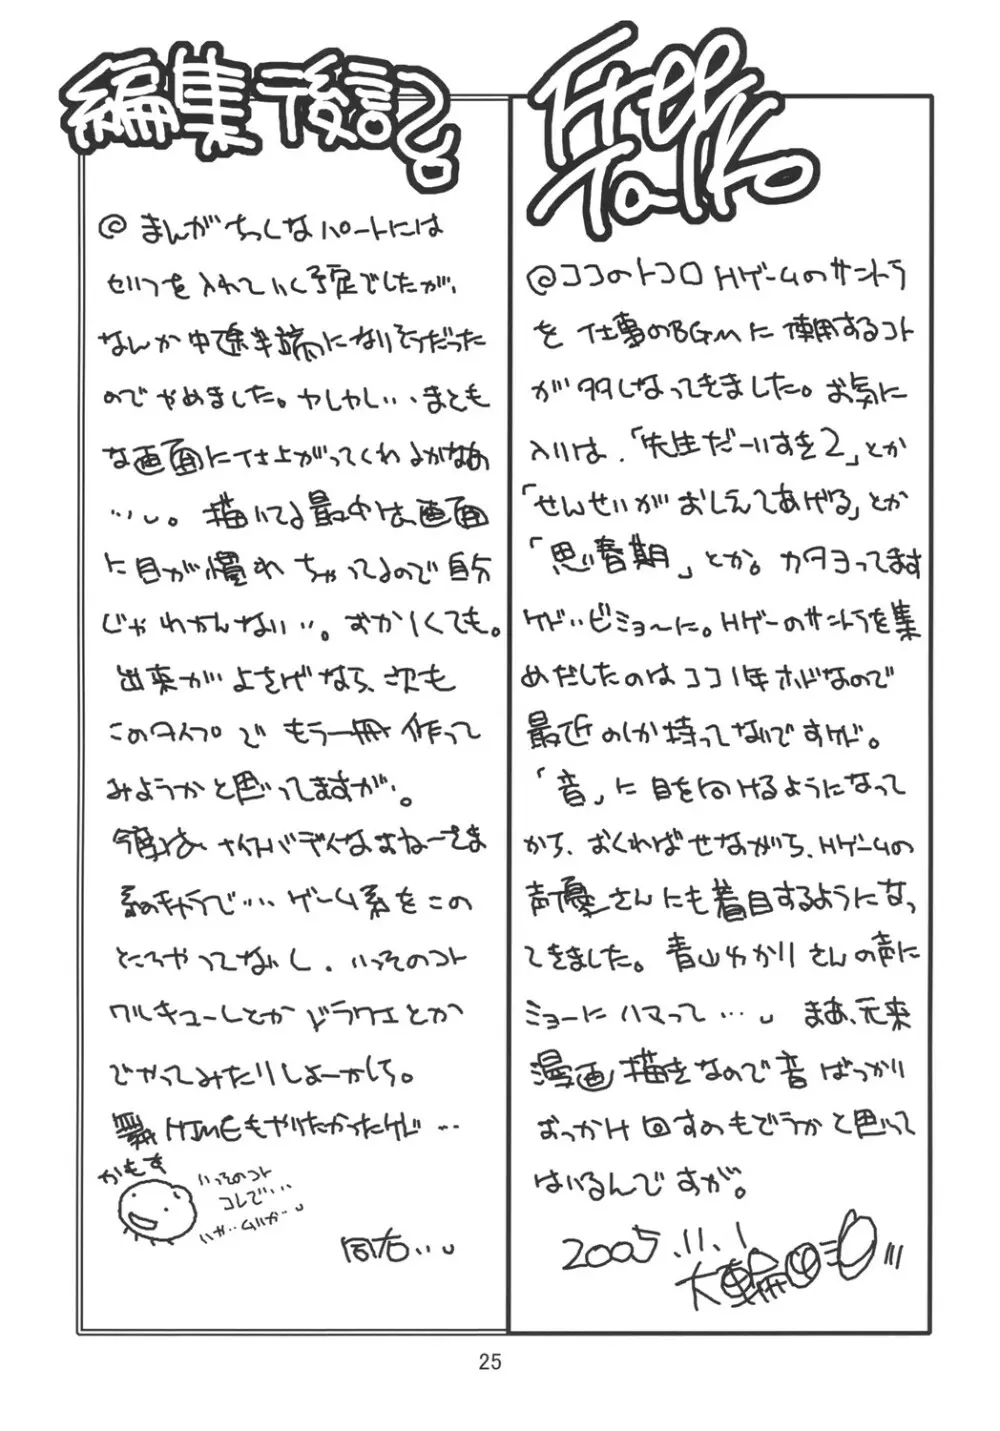 Free
Talk
@ココのトコロ Hゲームのサントラ
を 仕事のBGMに 使用するコト
が 多くなってきました。お気に
入りは、「先生だーいすき2」とか
「せんせいが おしえてあげる」とか
「思春期」とか。カタヨってます
ケド‥ビミョ〜に。Hゲーのサントラを集
めだしたのは ココ1年ホドなので
最近のしか持ってないですケド。
「音」に 目を向けるようになって
から、おくればせながら、Hゲームの
声優さんにも着目するようになっ
てきました。青山ゆかりさんの声に
ミョーに ハマって…。 まあ、元来
漫画描きなので音 ばっかり
おっかけ回すのもどうかと思って
はいるんですが。
2005.11.1
編集後記。
@ まんがちっくなパートには
せりフを入れていく予定でしたが、
なんか中途半端になりそうだった
のでやめました。ヤしかし‥、まとも
な画面に仕上がってくれるかなぁ
…。描いてる最中は、画面
に目が慣れちゃってるので自分
じゃわかんない‥。おかしくても。
出来がよさげなら、次も
このタイプで もう一冊作って
みようかと思ってますが。
今度は ナイスバディなおねーさま
系のキャラで… ゲーム系をこの
ところやってないし、いっそのコト
ワルキューレとかドラクエとか
でやってみたりしよーかしら。
舞HiMEもやりたかったケド…
かもす
いっそのコト
コレで…
いや‥ムリか…
同右‥
25